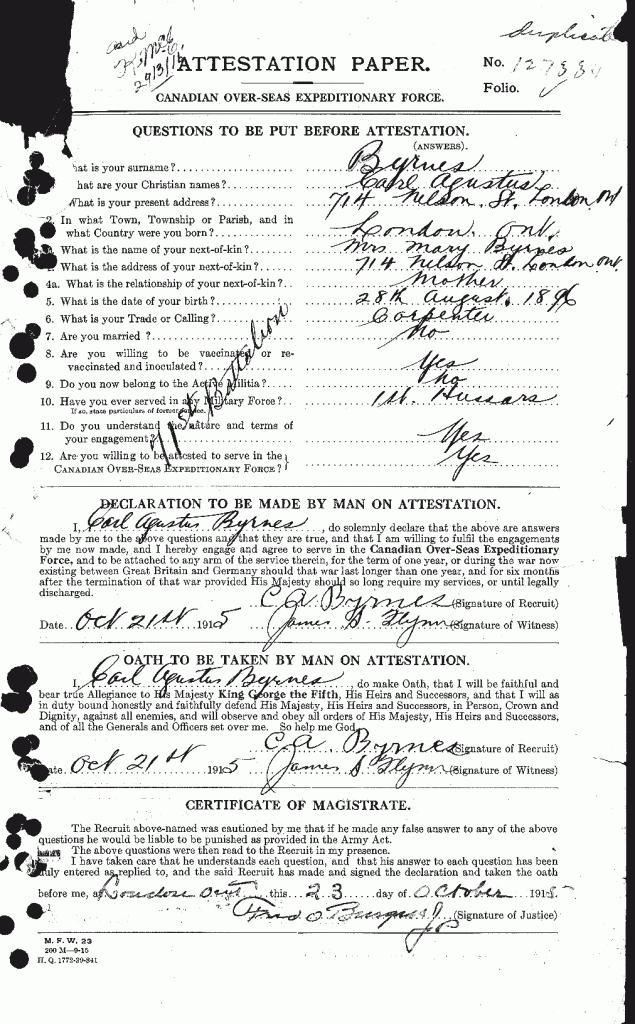 duplicate
ATTESTATION PAPER.
No.
Folio.
CANADIAN OVER-SEAS EXPEDITIONARY FORCE.
QUESTIONS TO BE PUT BEFORE ATTESTATION.
(ANSWERS).
hat is your surname?
Byrnes
hat are your Christian names?
Carl Agustus
What is your present address?
714 Nelson. St. London Ont
2. In what Town, Township or Parish, and in
what Country were you born?
London, Ont.
What is the name of your next-of-kin?
Mrs Mary Byrnes
What is the address of your next-of-kin?
714 Nelson St. London Ont.
4a. What is the relationship of your next-of-kin?
Mother
5. What is the date of your birth?
28th August. 1896
6. What is your Trade or Calling?
Carpenter
7. Are you married ?
No
8. Are you willing to be vaccinated or re-
vaccinated and inoculated?
Yes
9. Do you now belong to the Active Militia?
No
10. Have you ever served in any Military Force?
If so, state particulars of former service.
1st. Hussars
11. Do you understand the nature and terms of
your engagement?
Yes
12. Are you willing to be attested to serve in the
CANADIAN OVER-SEAS EXPEDITIONARY FORCE?
Yes
71st Battalion
DECLARATION TO BE MADE BY MAN ON ATTESTATION.
I, Carl Agustus Byrnes, do solemnly declare that the above are answers
made by me to the above questions and that they are true, and that I am willing to fulfil the engagements
by me now made, and I hereby engage and agree to serve in the Canadian Over-Seas Expeditionary
Force, and to be attached to any arm of the service therein, for the term of one year, or during the war now
existing between Great Britain and Germany should that war last longer than one year, and for six months
after the termination of that war provided His Majesty should so long require my services, or until legally
discharged.
C A Byrnes (Signature of Recruit)
Date Oct 21st 1915 James S. Flynn (Signature of Witness)
OATH TO BE TAKEN BY MAN ON ATTESTATION.
I, Carl Agustus Byrnes, do make Oath, that I will be faithful and
bear true Allegiance to His Majesty King George the Fifth, His Heirs and Successors, and that I will as
in duty bound honestly and faithfully defend His Majesty, His Heirs and Successors, in Person, Crown and
Dignity, against all enemies, and will observe and obey all orders of His Majesty, His Heirs and Successors,
and of all the Generals and Officers set over me. So help me God.
C. A. Byrnes (Signature of Recruit)
ate Oct 21st 1915 James S Flynn (Signature of Witness)
CERTIFICATE OF MAGISTRATE.
The Recruit above-named was cautioned by me that if he made any false answer to any of the above
questions he would be liable to be punished as provided in the Army Act.
The above questions were then read to the Recruit in my presence.
I have taken care that he understands each question, and that his answer to each question has been
duly entered as replied to, and the said Recruit has made and signed the declaration and taken the oath
before me, at London Ont this 23 day of October 1915
(Signature of Justice)
J.P.
M. F. W. 23
200 M—9-15
H. Q. 1772-39-841